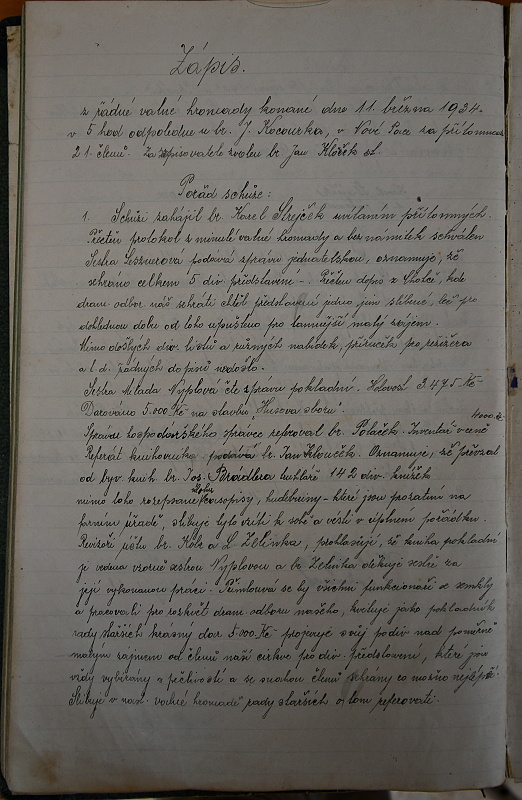 Zápis.
z řádné valné hromady konané dne 11. března 1934
v 5 hod odpoledne u br. J. Kocourka, v Nové Pace za přítomnosti
21 členů. Za zapisovatele zvolen br. Jan Klouček st.
Pořad schůze:
1. Schůzi zahájil br. Karel Strejček uvítáním přítomných.
Přečten protokol z minulé valné hromady a bez námitek schválen
Sestra Lesznerová podává zprávu jednatelskou, oznamuje, že
sehráno celkem 5 div. představení. Přečten dopis z Choteč, kde
dram. odbor náš sehráti chtěl představení jedno jim slíbené, leč pro
dohlednou dobu od toho upouštíme pro tamnější malý zájem.
Mimo došlých div. listů a různých nabídek, příruček pro režiséra
a t d. žádných dopisů nedošlo.
Sestra Mlada Vyplová čte zprávu pokladní. Hotovost 3475 Kč
Darováno 5.000 Kč na stavbu "Husova sboru".
Správu hospodářského správce referoval br. Poláček. Inventář v ceně 4000 Kč
Referát knihovníka podává br. Jan Klouček. Oznamuje, že převzal
od býv. knih. br. Jos. Brádlera truhláře 142 div. knížek
mimo toho rozepsané Lohy, časopisy, hudebniny - které jsou prozatím na
farním úřadě, slibuje tyto vzíti k sobě a vésti v úplném pořádku.
Revisoři účtů br. Kolz a L. Zelinka, prohlašují, že kniha pokladní
je vedena vzorně sestrou Vyplovou a br. Zelinka děkuje sestře za
její vykonanou práci. Přimlouvá se by všichni funkcionáři se semkly
a pracovali pro rozkvět dram. odboru našeho, kvituje jako pokladník
rady starších krásný dar 5.000 Kč projevuje svůj podiv nad poměrně
malým zájmem od členů naší církve pro div. představení, které jsou
vždy vybírány s péčlivostí a se snahou členů sehrány co možno nejlépe.
Slibuje v nast. valné hromadě rady starších o tom referovati.